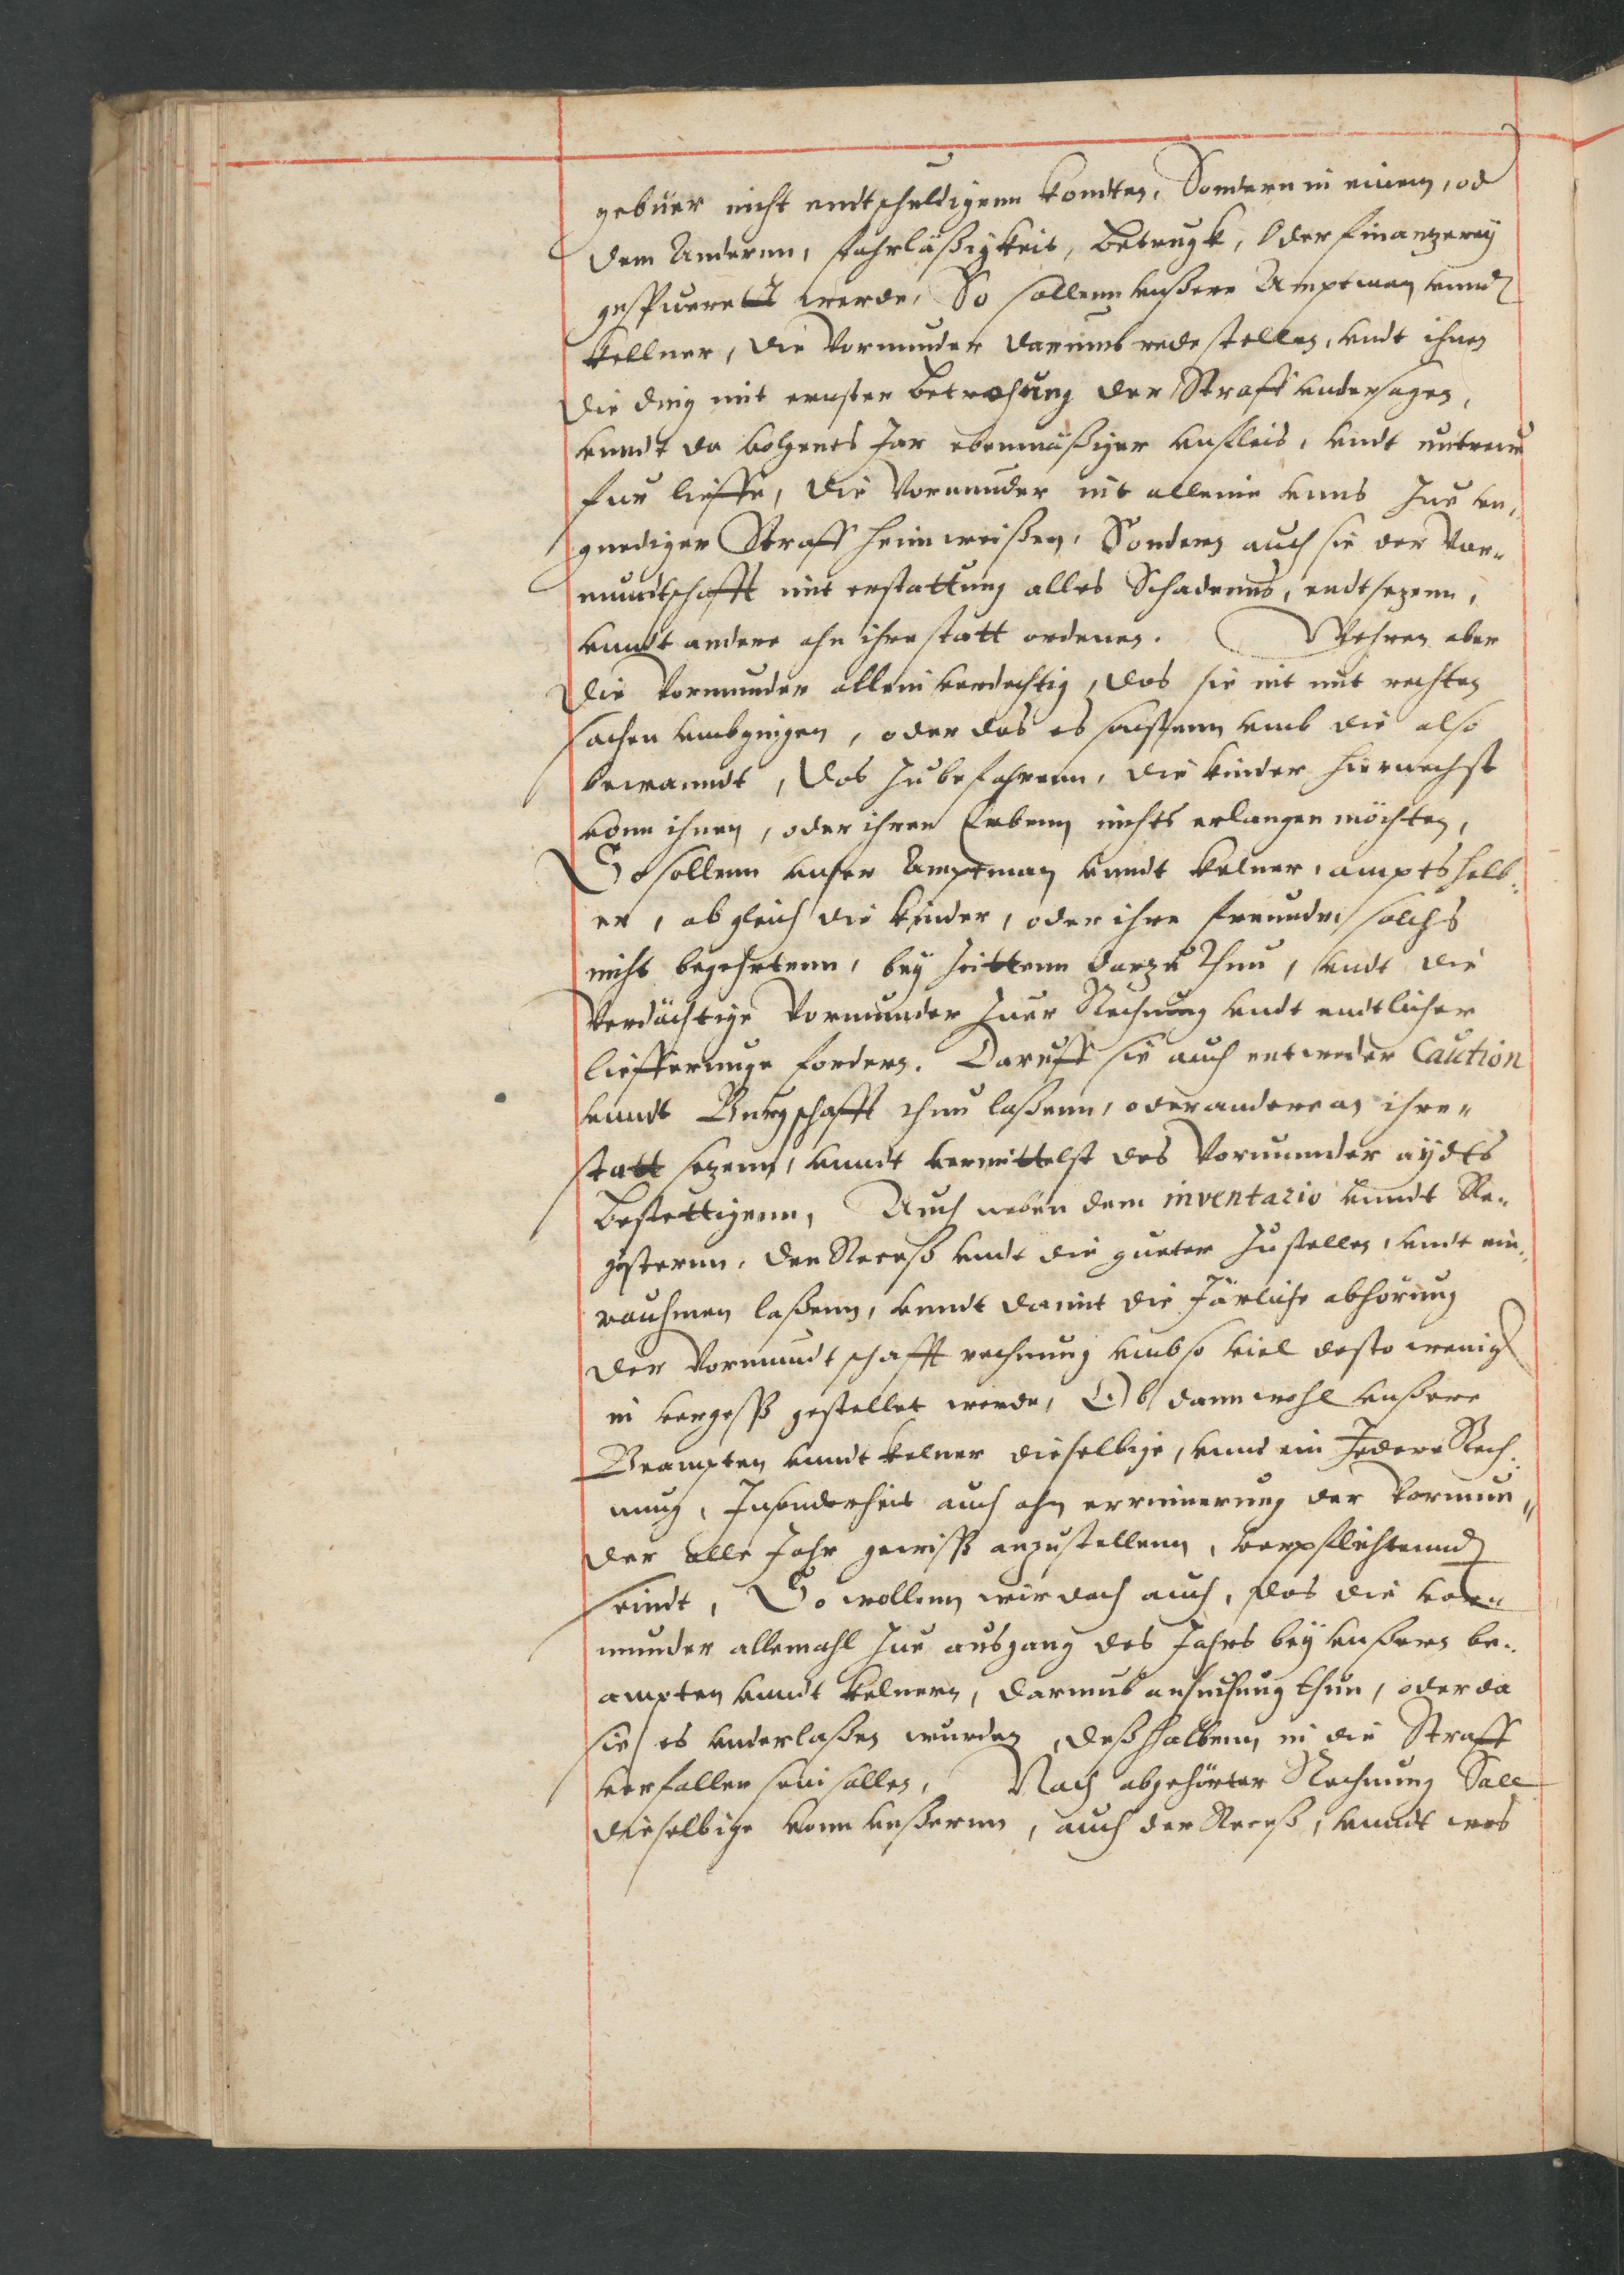 gebuer nicht endtschuldigenn kondten, Sondern in einem, od
dem Anderenn, fahrläßigkeit, betrugk, Oder finantzereÿ
gespueret werde, So sollenn vnßere Amptman vnnd
kellner, die Vormunder darumb rede stellen, vndt ihnen
die ding mit ernster betrohung der Straff vndersagen,
vnndt da volgents Jar ebenmäßiger vnfleis, vndt vntreuw
fur lieffe, die Vormunder nit alleine vnns Zur vn,
gnediger Straff heimweißen, Sondern auch sie der Vor„
mundtschafft mit erstattung alles Schadenns, endtsezenn,
vnndt andere ahn ihre statt ordenen. Wehren aber
die Vormunder allein verdechtig, das sie nit mit rechten
sachen vmbgiengen, oder das es sonstenn vmb die also
bewanndt, das Zubefahrenn, die kinder hiernechst
vonn ihnen, oder ihren Erbenn nichts erlangen möchten,
So sollenn vnser Amptman vnndt kelner, amptshalb„
er, ob gleich die kinder, oder ihre freunde, solchs
nicht begehrtenn, beÿ Zeittenn darzu thun, vndt die
Verdächtige Vormunder Zuer Rechnung vndt endtlicher
lieffernnge fordern. Daruff sie auch entweder Caution
vnndt Burgschafft thun laßenn, oder andere an ihre„
statt sezenn, vnndt vermittelst des Vormunder aÿdts
bestettigenn, Auch neben dem inventario vnndt Re„
gisterenn, den Receß vndt die gueter Zustellen, vndt ein„
rauhmen laßenn, vnndt damit die Järliche abhörung
der Vormundtschafft rechnung vmbso viel desto wenig
in vergeß gestellet werde, Ob dann wohl vnßere
Beampten vnndt kelner dieselbige, vnnd ein Jedere Rech„
nung, Insonderheit auch ohn errinnerung der Vormun„
der alle Jahr gewiß anzustellenn, verpflichtennd
seindt, So wollenn wir doch auch, das die vor„
munder allemahl Zue ausgang des Jahrs beÿ vnßern be„
ampten vnndt kelnern, darumb ansuchung thun, oder da
sie es vnderlaßen wurden, deßhalbenn in die Straff
verfallen sein sollen, Nach abgehörter Rechnung Soll
dieselbige vonn vnßerenn, auch der Receß, vnndt was